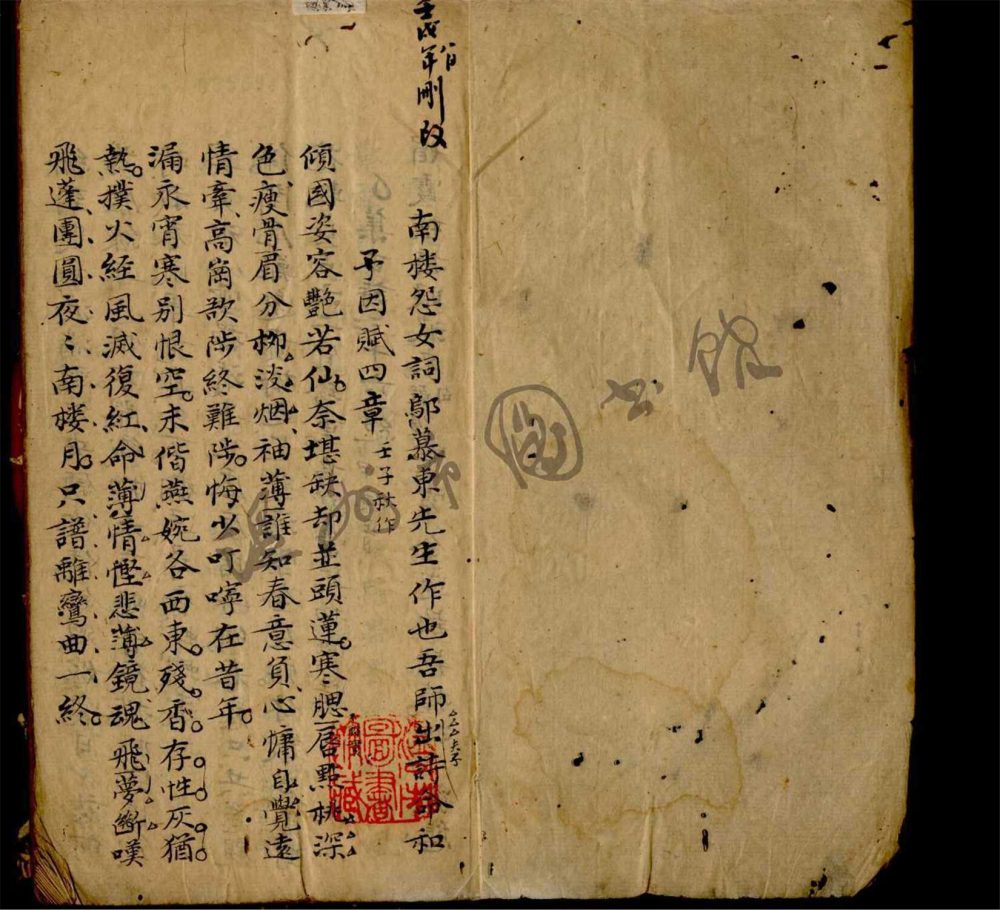 壬戌年八月刪改
南楼怨女詞鄔慕東先生作也吾師出詩命和
予因賦四章
壬子秋作
傾國姿容艷若仙奈堪缺却並頭蓮寒腮唇點桃深
色瘦骨眉分柳淡烟袖薄誰知春意負心慵自覺遠
情牽高崗歆陟終難陟悔少叮嚀在昔年
漏永宵寒別恨空未偕燕婉各西東殘香存性灰猶
熱撲火経風滅復紅命薄情慳悲薄鏡魂飛夢斷嘆
飛蓬團圓夜〻南楼月只譜離鸞曲一終
圖書館